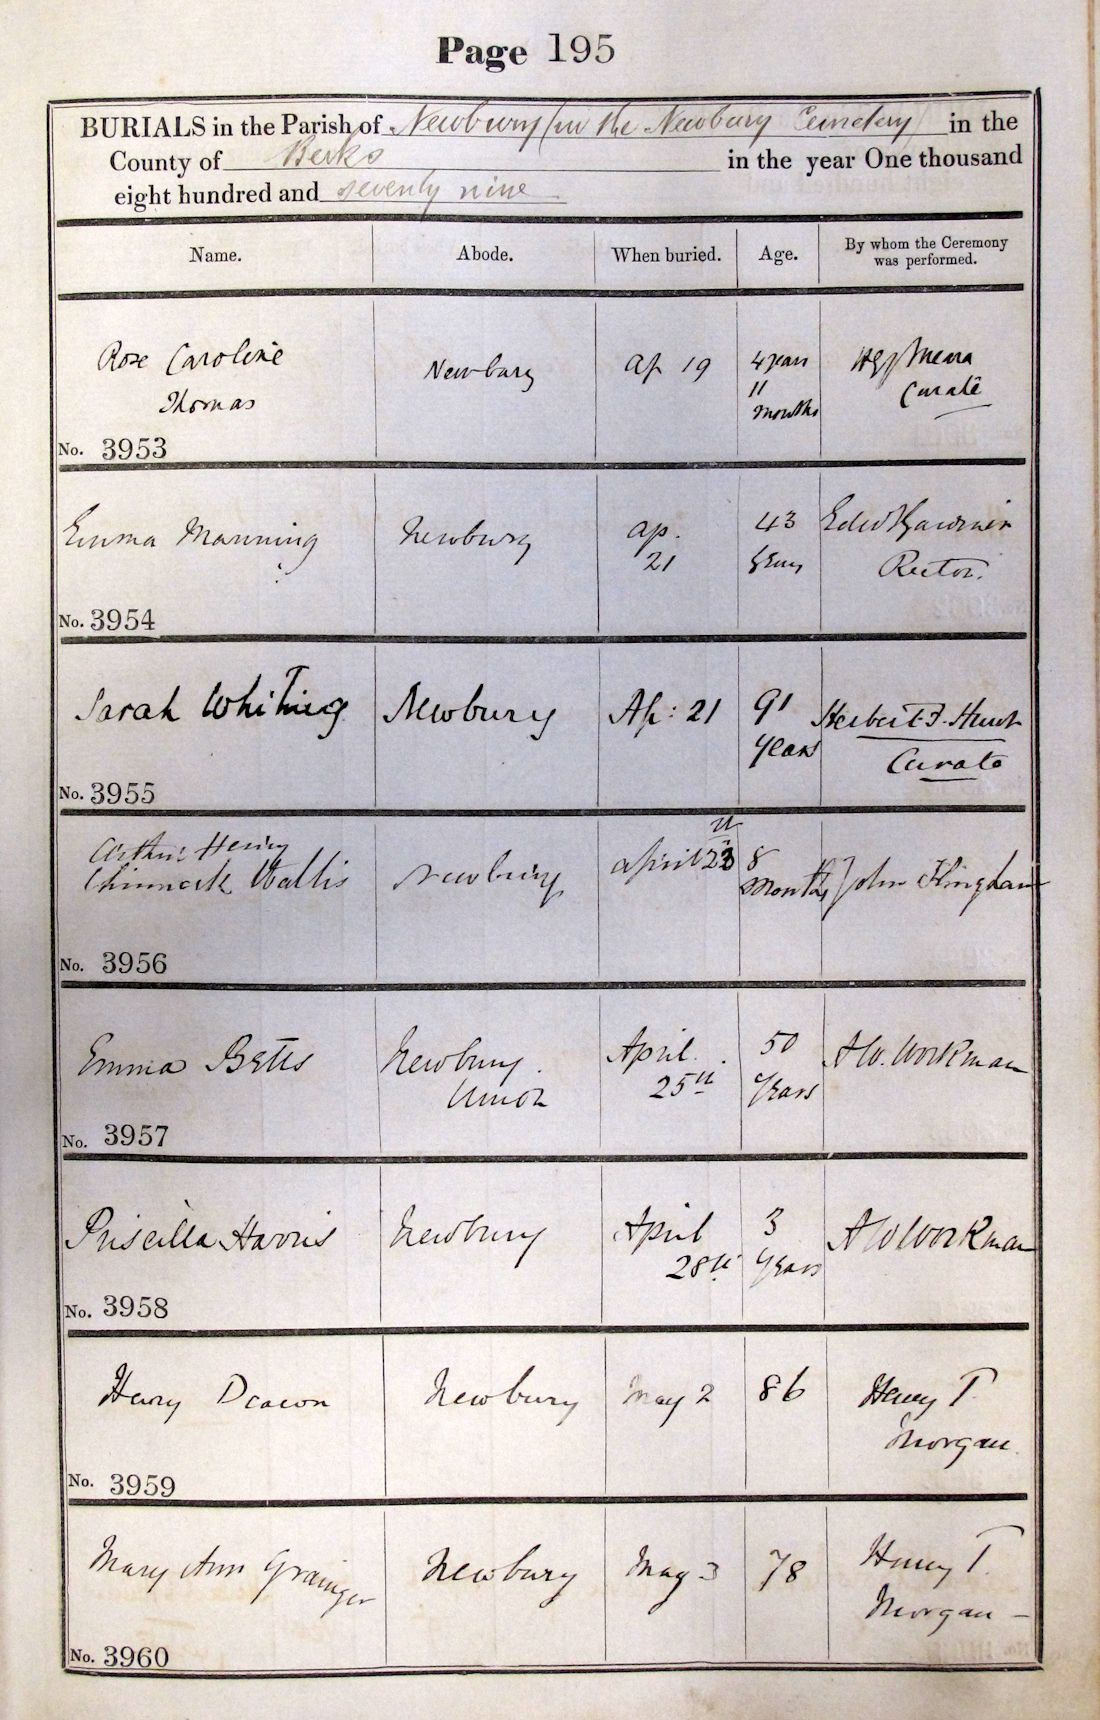 Page 195
BURIALS in the Parish of Newbury (in the Newbury Cemetery) in the
County of Berks in the year One thousand
eight hundred and seventy nine
Name. Abode. When buried. Age. By whom the Ceremony was performed.
Rose Caroline
Thomas
Newbury
Ap 19
4 years
11
months
Curate
No. 3953
Emma Manning
Newbury
Ap.
21
43
years
Edwd Gardiner
Rector.
No. 3954
Sarah Whiting
Newbury
Ap: 21
91
years
Herbert F. Hunt
Curate
No. 3955
Arthur Henry
Chinnock Wallis
Newbury
April 23
8
Months
John Kingham
No. 3956
Emma Betts
Newbury
Union
April
25th
50
Years
A W. Workman
No. 3957
Priscilla Harris
Newbury
April
28th
3
Years
A W Workman
No. 3958
Henry Deacon
Newbury
May 2
86
Henry T.
Morgan
No. 3959
Mary Ann Grainger
Newbury
May 3
78
Henry T.
Morgan –
No. 3960